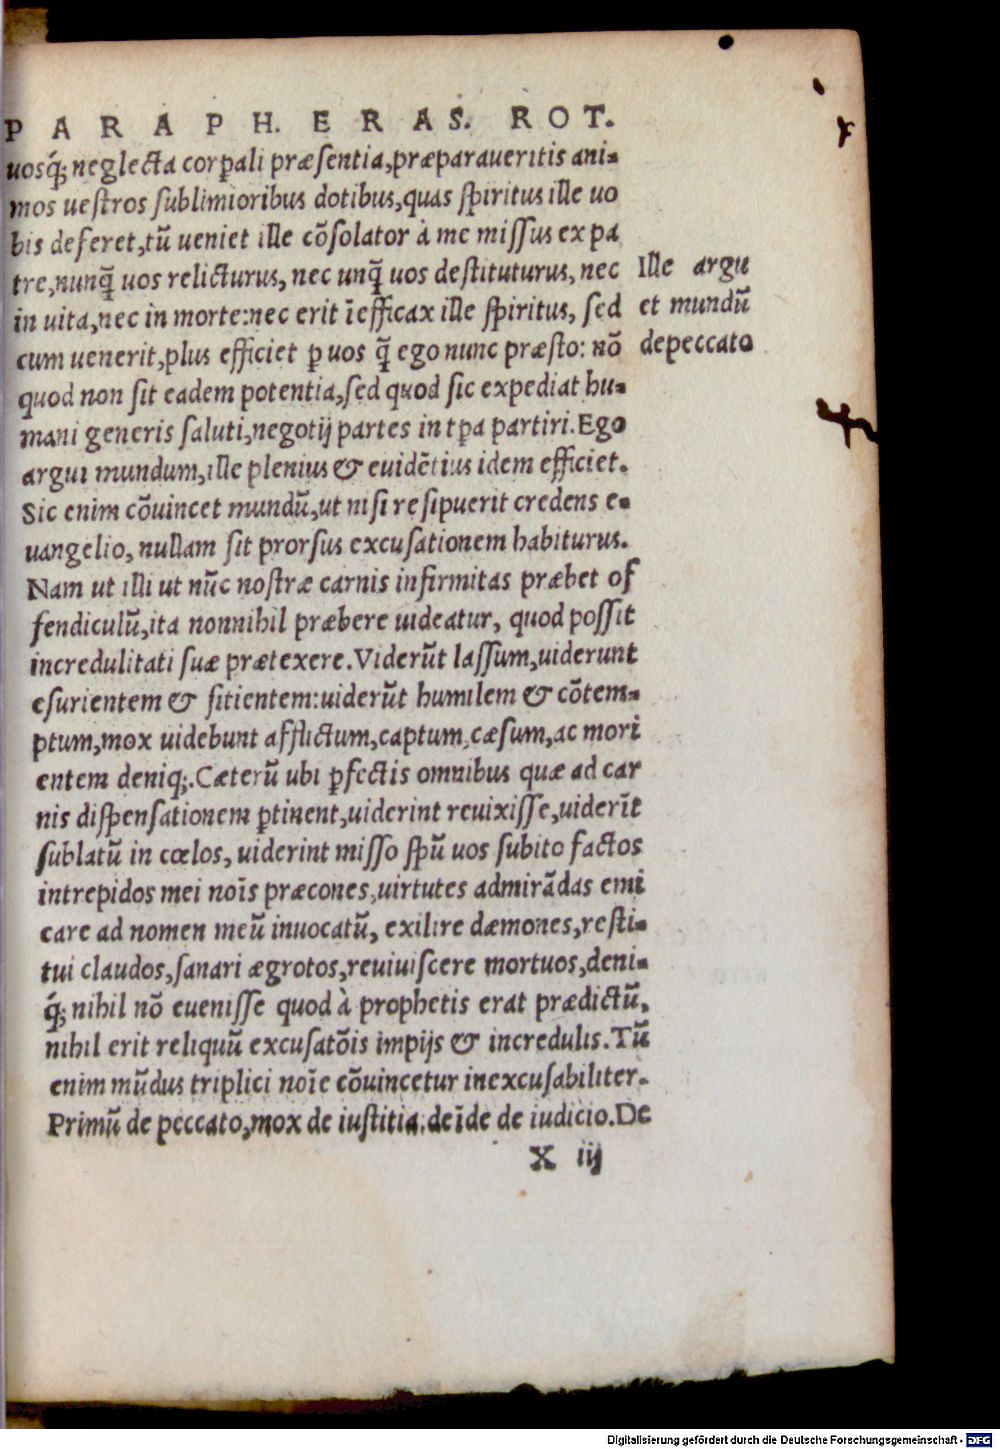 PARAPH. ERAS. ROT.
uosq́; neglecta corꝑali præsentia,præparaueritis ani-
mos uestros sublimioribus dotibus,quas spiritus ille uo
bis deferet,tū ueniet ille cōsolator à me missus ex pa
tre,nunq̄ uos relicturus, nec unq̄ uos destituturus, nec
in uita,nec in morte:nec erit īefficax ille spiritus, sed
cum uenerit,plus efficiet ꝑ uos q̄ ego nunc præsto: nō
quod non sit eadem potentia,sed quod sic expediat hu-
mani generis saluti,negotij partes in tꝑa partiri.Ego
argui mundum,ille plenius & euidētius idem efficiet.
Sic enim cōuincet mundū,ut nisi resipuerit credens e-
uangelio, nullam sit prorsus excusationem habiturus.
Nam ut illi ut nūc nostræ carnis infirmitas præbet of
fendiculū,ita nonnihil præbere uideatur, quod possit
incredulitati suæ prætexere.Viderūt lassum,uiderunt
esurientem & sitientem:uiderūt humilem & cōtem-
ptum,mox uidebunt afflictum,captum,cæsum,ac mori
entem deniq;.Cæterū ubi ꝑfectis omnibus quæ ad car
nis dispensationem ꝑtinent,uiderint reuixisse,uiderīt
sublatū in cœlos, uiderint misso spū uos subito factos
intrepidos mei noīs præcones,uirtutes admirādas emi
care ad nomen meū inuocatū, exilire dæmones,resti-
tui claudos,sanari ægrotos,reuiuiscere mortuos,deni-
q́; nihil nō euenisse quod à prophetis erat prædictū,
nihil erit reliquū excusatōis impijs & incredulis.Tū
enim mūdus triplici noīe cōuincetur inexcusabiliter.
Primū de peccato,mox de iustitia,deīde de iudicio.De
X iij
Ille argu
et mundū
depeccato
Digitalisierung gefördert durch die Deutsche Forschungsgemeinschaft - DFG